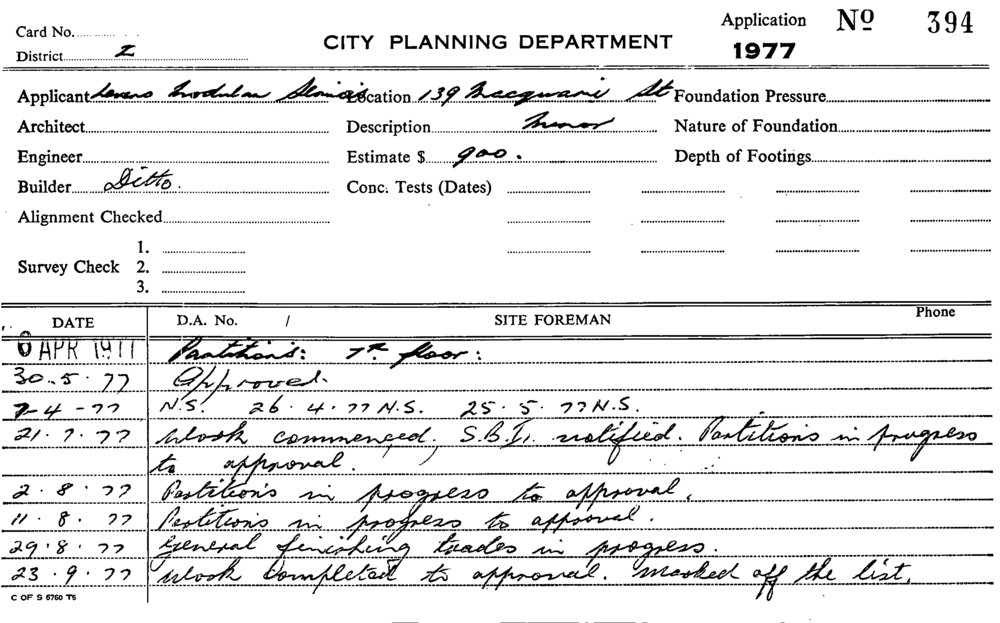 Card No. Application Nº 394
District I CITY PLANNING DEPARTMENT 1977
Applicant Modular Location 139 Macquarie St Foundation Pressure
Architect Description Minor Nature of Foundation
Engineer Estimate $ 900. Depth of Footings
Builder Ditto. Conc. Tests (Dates)
Alignment Checked
1.
Survey Check 2.
3.
DATE D.A. No. / SITE FOREMAN Phone
APR 1977 Partitions: 7th floor:
30.5.77 Approved.
7-4-77 N.S. 26.4.77 N.S. 25.5.77 N.S.
21.7.77 Work commenced. S.B.I. notified. Partitions in progress
to approval.
2.8.77 Partitions in progress to approval.
11.8.77 Partitions in progress to approval.
29.8.77 General finishing trades in progress.
23.9.77 Work completed to approval. Marked off the list.
C OF S 6760 T5